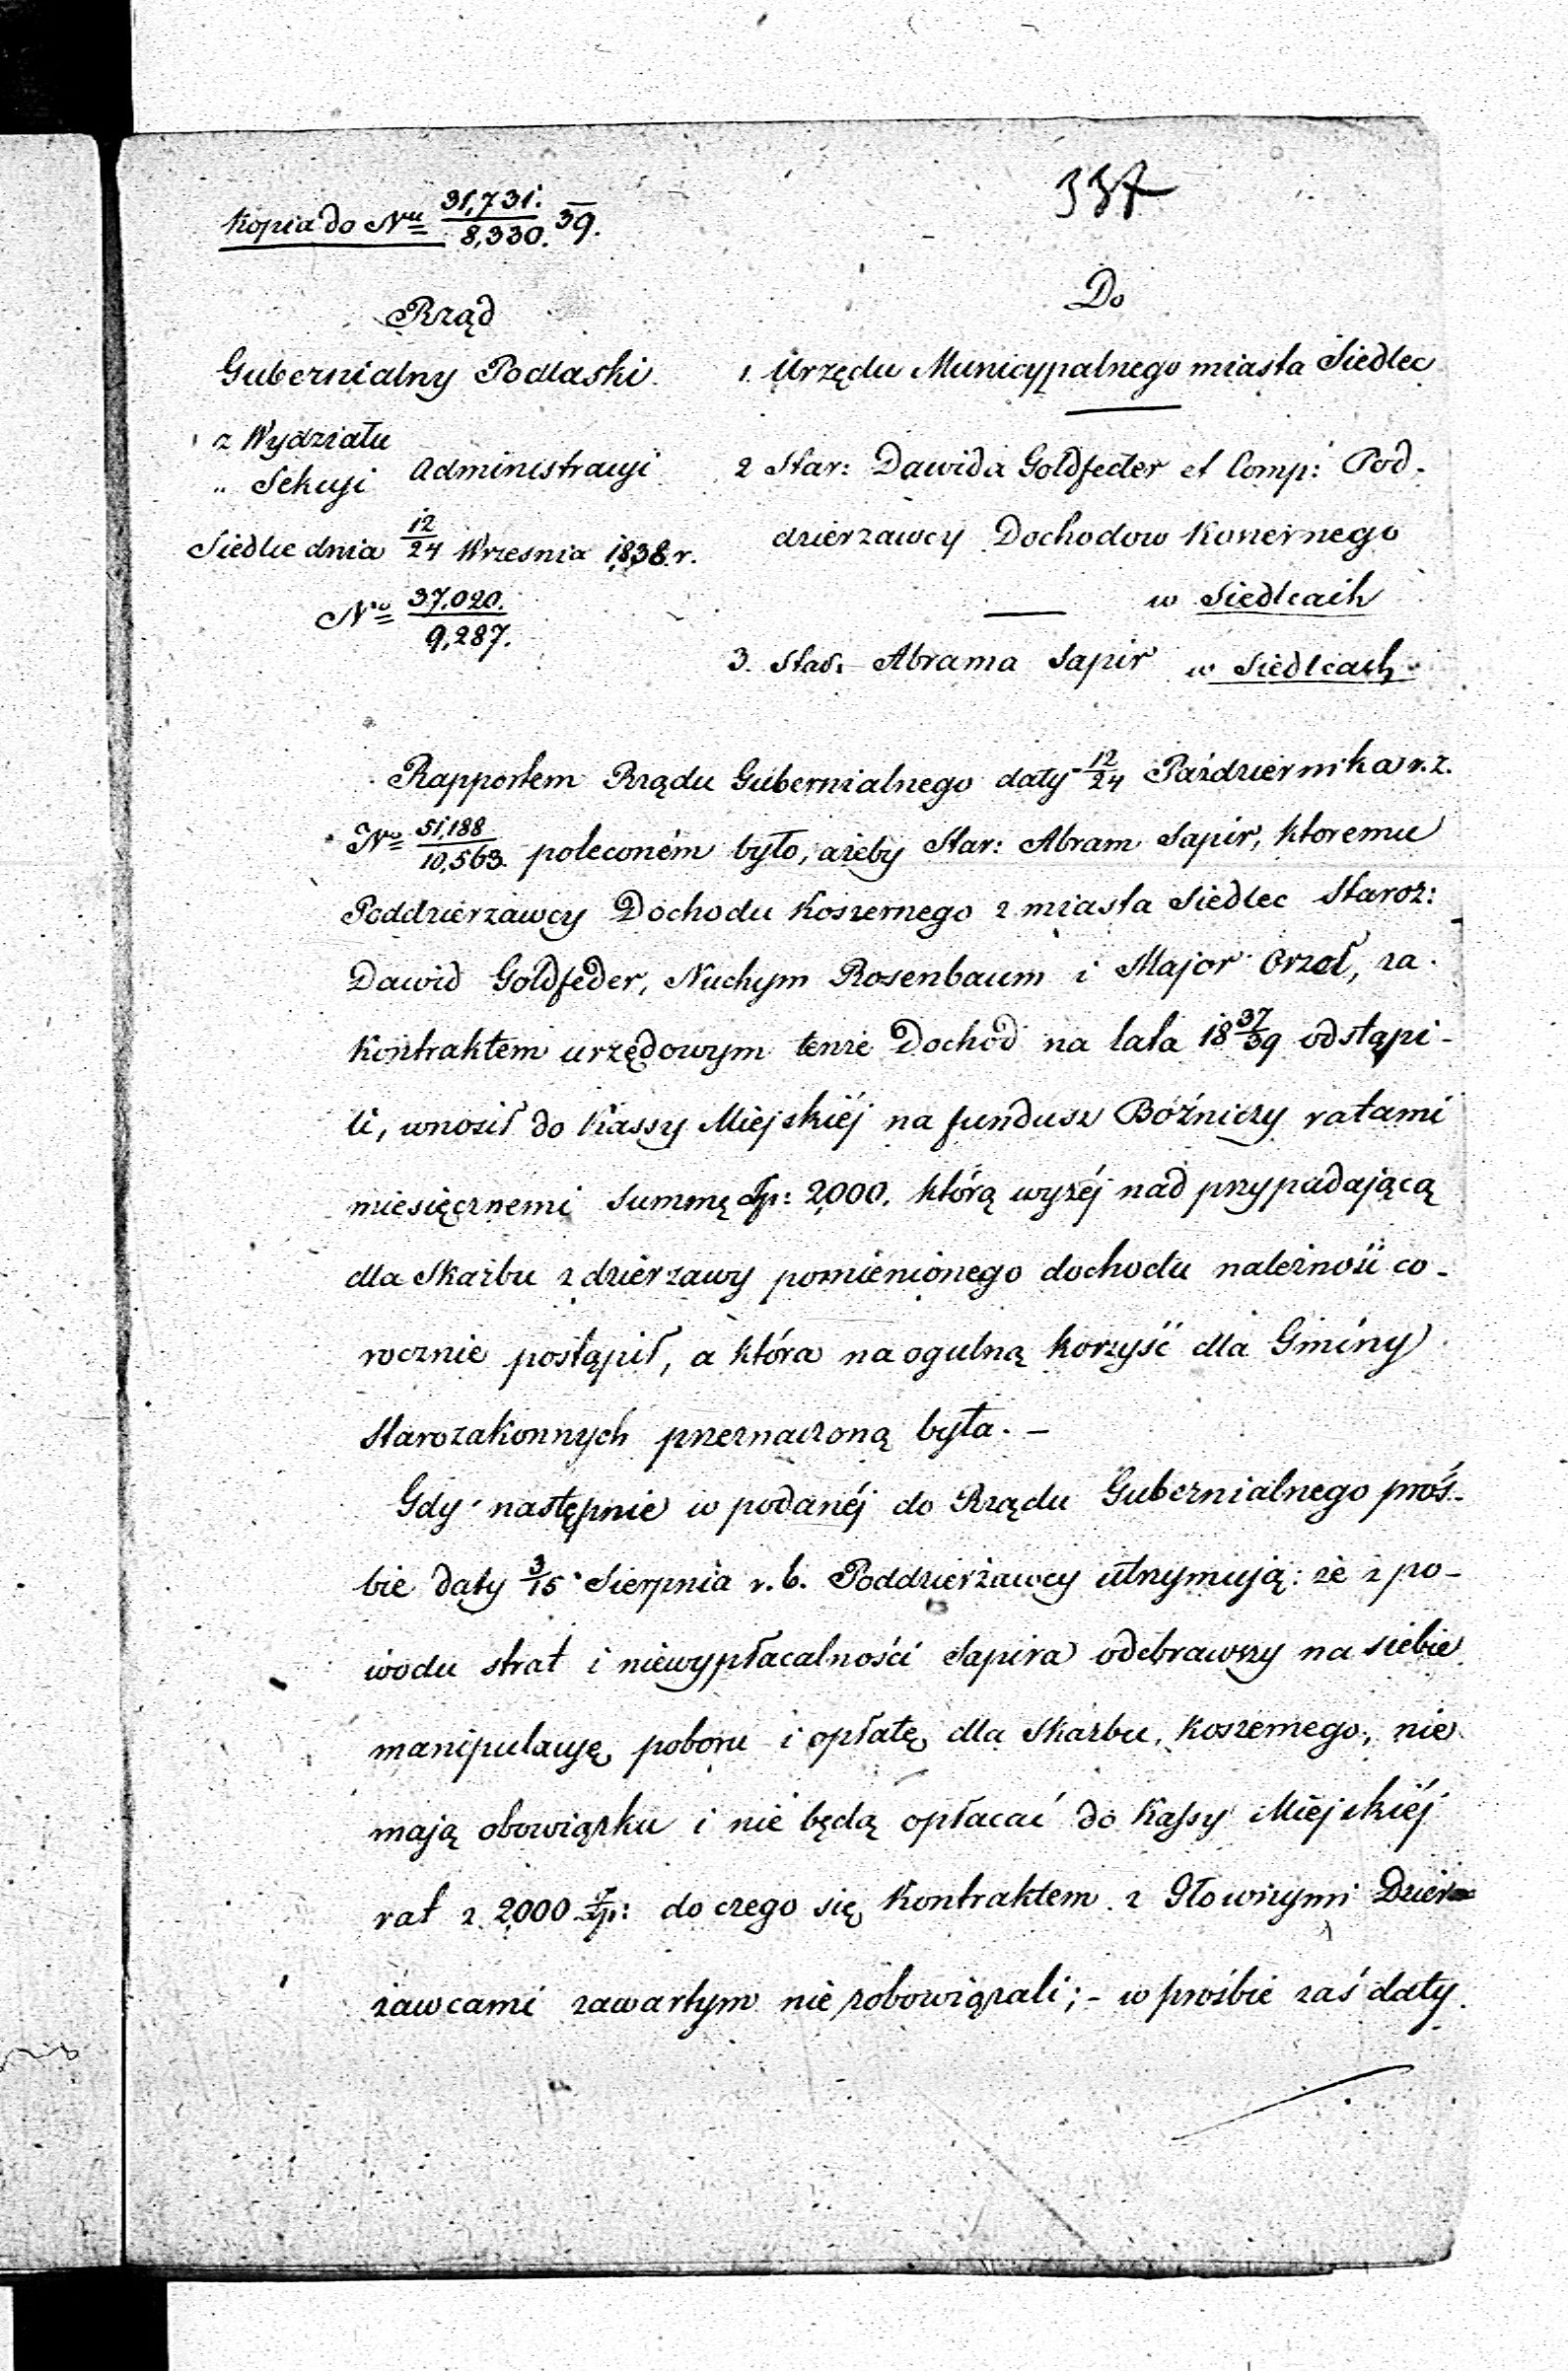 337
Kopia do Nru 31,731./8,330. 39.
Rząd
Gubernialny Podlaski
z Wydziału
„ Sekcyi Administracyi
Siedlce dnia 12/24 Wrzesnia 1838 r.
No 37.020./9,287.
Do
1. Urzędu Municypalnego miasta Siedlec
2 Star: Dawida Goldfeder et Comp: Pod-
dzierzawcy Dochodow Koszernego
w Siedlcach
3. Star: Abrama Sapir w Siedlcach
Rapportem Rządu Gubernialnego daty 12/24 Października r. z.
No 51,188/10,563. poleconém było, ażeby Star: Abram Sapir, ktoremu
Poddzierzawcy Dochodu Koszernego z miasta Siedlec Staroz:
Dawid Goldfeder, Nuchym Rosenbaum i Major Orzeł, za
Kontraktem urzędowym tenże Dochód na lata 1837/39 odstąpi-
li, wnosił do Kassy Miejskiéj na fundusz Bóźniczy ratami
miesięcznemi Summę Zp: 2,000. którą wyżéj nad przypadającą
dla Skarbu z dzierzawy pomienionego dochodu należność co-
rocznie postąpił, a która na ogulną korzyść dla Gminy
Starozakonnych przeznaczoną była. —
Gdy następnie w podanéj do Rządu Gubernialnego proś-
bie daty 3/15 Sierpnia r. b. Poddzierżawcy utrzymują: że z po-
wodu strat i niewypłacalności Sapira odebrawszy na siebie
manipulacyę poboru i opłatę dla Skarbu, Koszernego, nie
mają obowiązku i nie będą opłacać do Kassy Miejskiéj
rat z 2000 Zp: do czego się Kontraktem z Głownymi Dzier-
żawcami zawartym nie zobowiązali; - w prośbie zaś daty